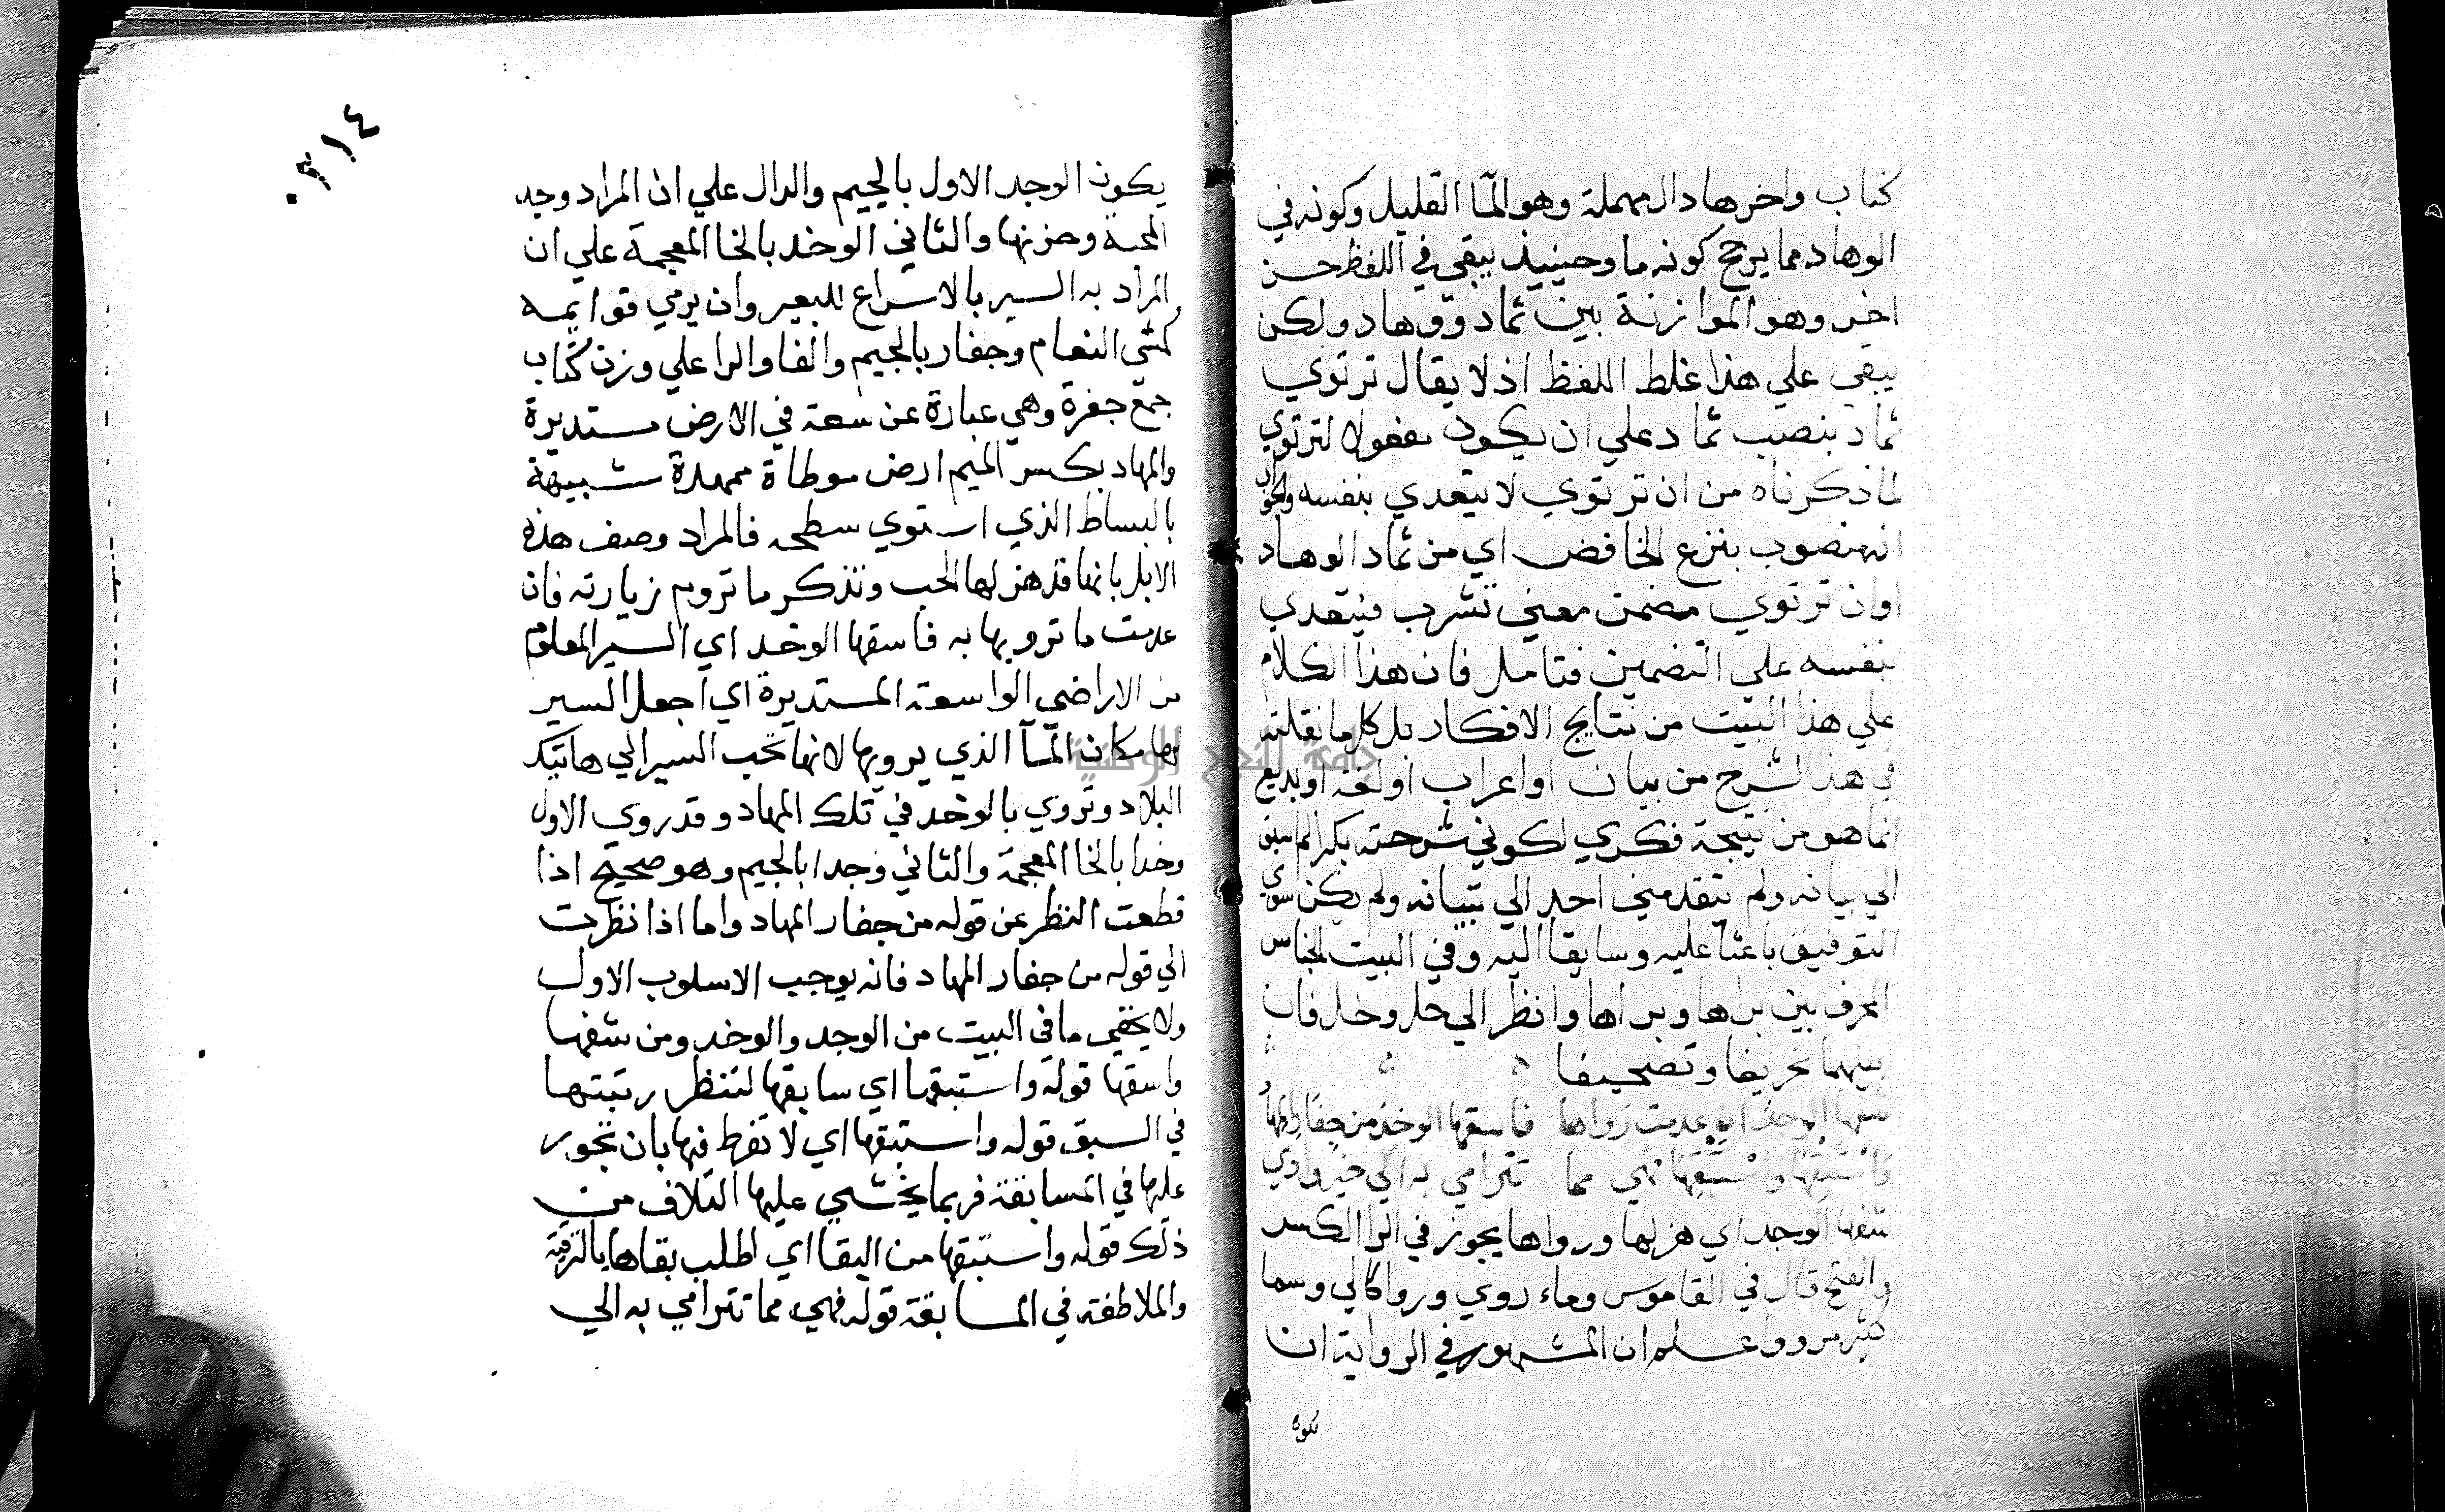 كتاب واخرها دال مهملة وهو المآ القليل وكونه في
الوهاد مما يرجح كونه ما وحينيذ يبقي في اللفظ حسن
اخر وهو الموازنة بين ثماد ووهاد ولكن
يبقي علي هذا غلط اللفظ اذ لا يقال ترتوي
ثماد بنصب ثماد علي ان يكون مفعولا لترتوي
لما ذكرناه من ان ترتوي لا يتعدي بنفسه والجواب
انه منصوب بنزع الخافض اي من ثماد الوهاد
اوان ترتوي مضمن معني تشرب فيتعدي
بنفسه علي التضمين فتامل فان هذا الكلام
علي هذا البيت من نتايج الافكار بل كل ما نقلته
في هذا الشرح من بيان او اعراب او لغة او بديع
انما هو من نتيجة فكري لكوني شرحته بكرا لم اسبق
الي بيانه ولم يتقدمني احد الي تبيانه ولم يكن سوي
التوفيق باعثا عليه وسايقا اليه وفي البيت الجناس
المحرف بين براها وبراها وانظر الي حل وخل فان
بينهما تحريفا وتصحيفا
شفها الوجد ان عدمت رواها فاسقها الوخد من جفار المهاد
واستبقها واستبقها فهي مما تترامي به الي خير وادي
شفها الوجد اي هزلها ورواها يجوز في الرا الكسر
والفتح قال في القاموس وماء روي وروا كالي وسما
كثير مرو واعلم ان المشهور في الرواية ان
يكون
٣١٤
يكون الوجد الاول بالجيم والدال علي ان المراد وجد
المحبة وحزنها والثاني الوخد بالخا المعجمة علي ان
المراد به السير بالاسراع للبعير وان يرمي قوايمه
كمشي النعام وجفار بالجيم والفا والرا علي وزن كتاب
جمع جفرة وهي عبارة عن سعة في الارض مستديرة
والمهاد بكسر الميم ارض موطاة ممهدة شبيهة
بالبساط الذي استوي سطحه فالمراد وصف هذه
الابل بانها قد هزلها الحب وتذكر ما تروم زيارته فان
عدمت ما ترويها به فاسقها الوخد اي السير المعلوم
من الاراضي الواسعة المستديرة اي اجعل السير
لها مكان المآ الذي يرويها لانها تحب السير الي هاتيك
البلاد وتروي بالوخد في تلك المهاد وقد روي الاول
وخدا بالخا المعجمة والثاني وجدا بالجيم وهو صحيح اذا
قطعت النظر عن قوله من جفار المهاد واما اذا نظرت
الي قوله من جفار المهاد فانه يوجب الاسلوب الاول
ولا يخفي ما في البيت من الوجد والوخد ومن شفها
واسقها قوله واستبقها اي سابقها لتنظر رتبتها
في السبق قوله واستبقها اي لا تفرط فيها بان تجور
عليها في المسابقة فربما يخشي عليها التلاف من
ذلك قوله واستبقها من البقا اي اطلب بقاها بالترفية
والملاطفة في المسابقة قوله فهي مما تترامي به الي